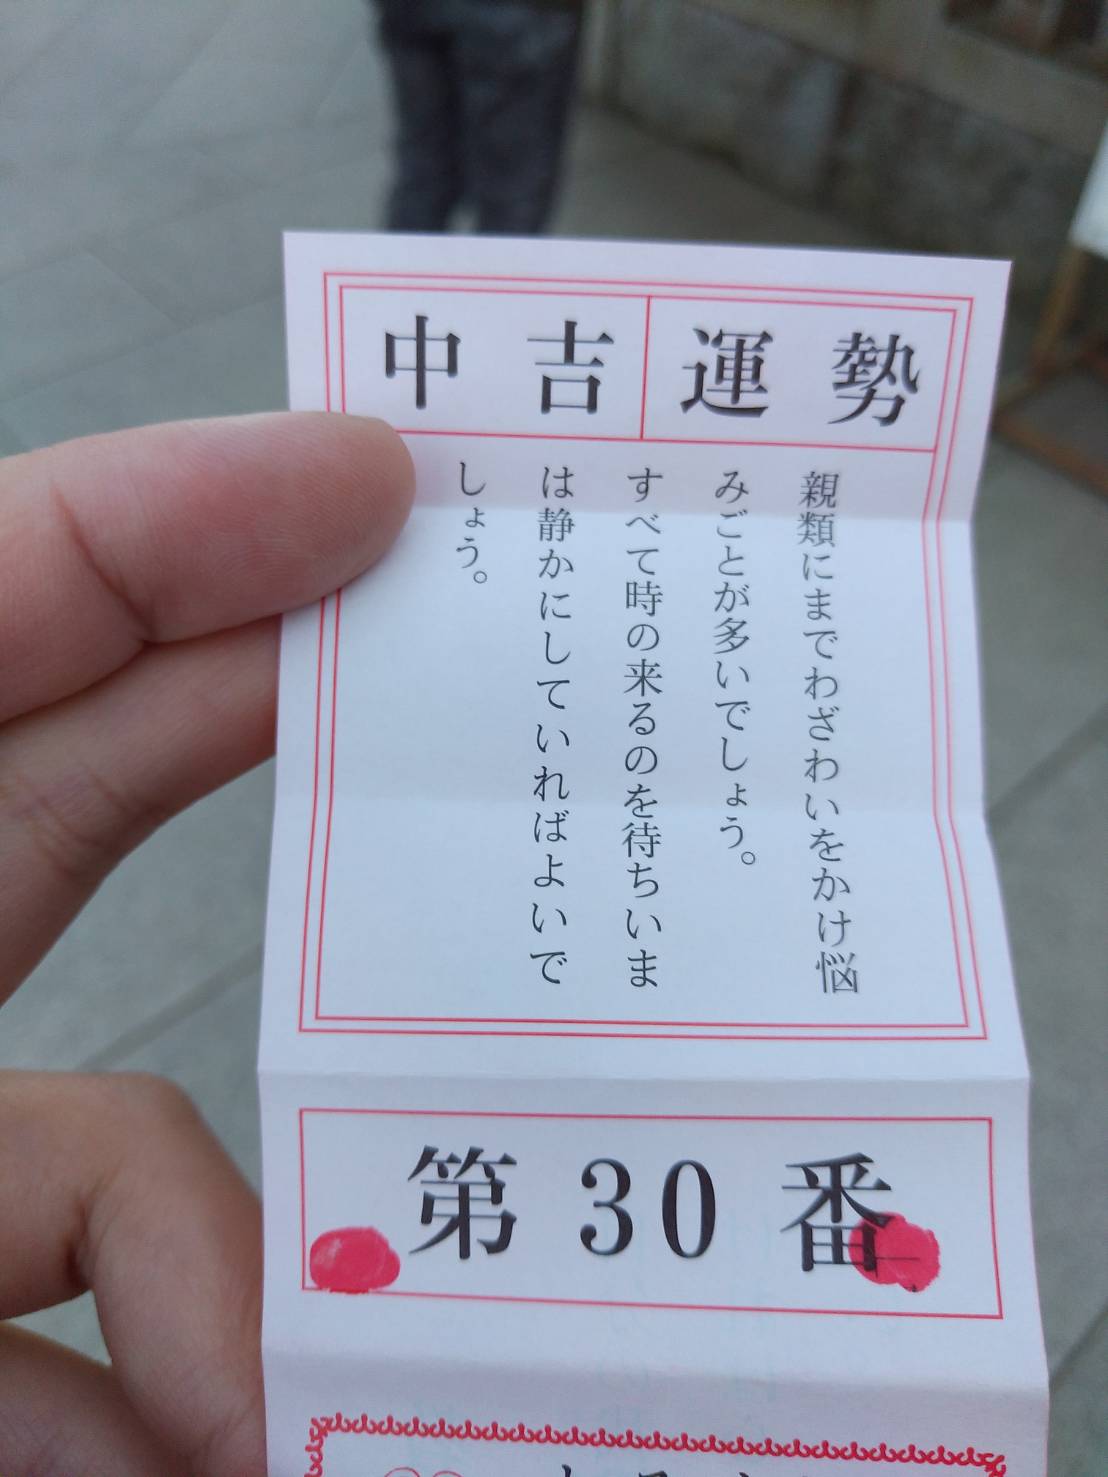 中吉 運勢
親類にまでわざわいをかけ悩
みごとが多いでしょう。
すべて時の来るのを待ちいま
は静かにしていればよいで
しょう。
第30番